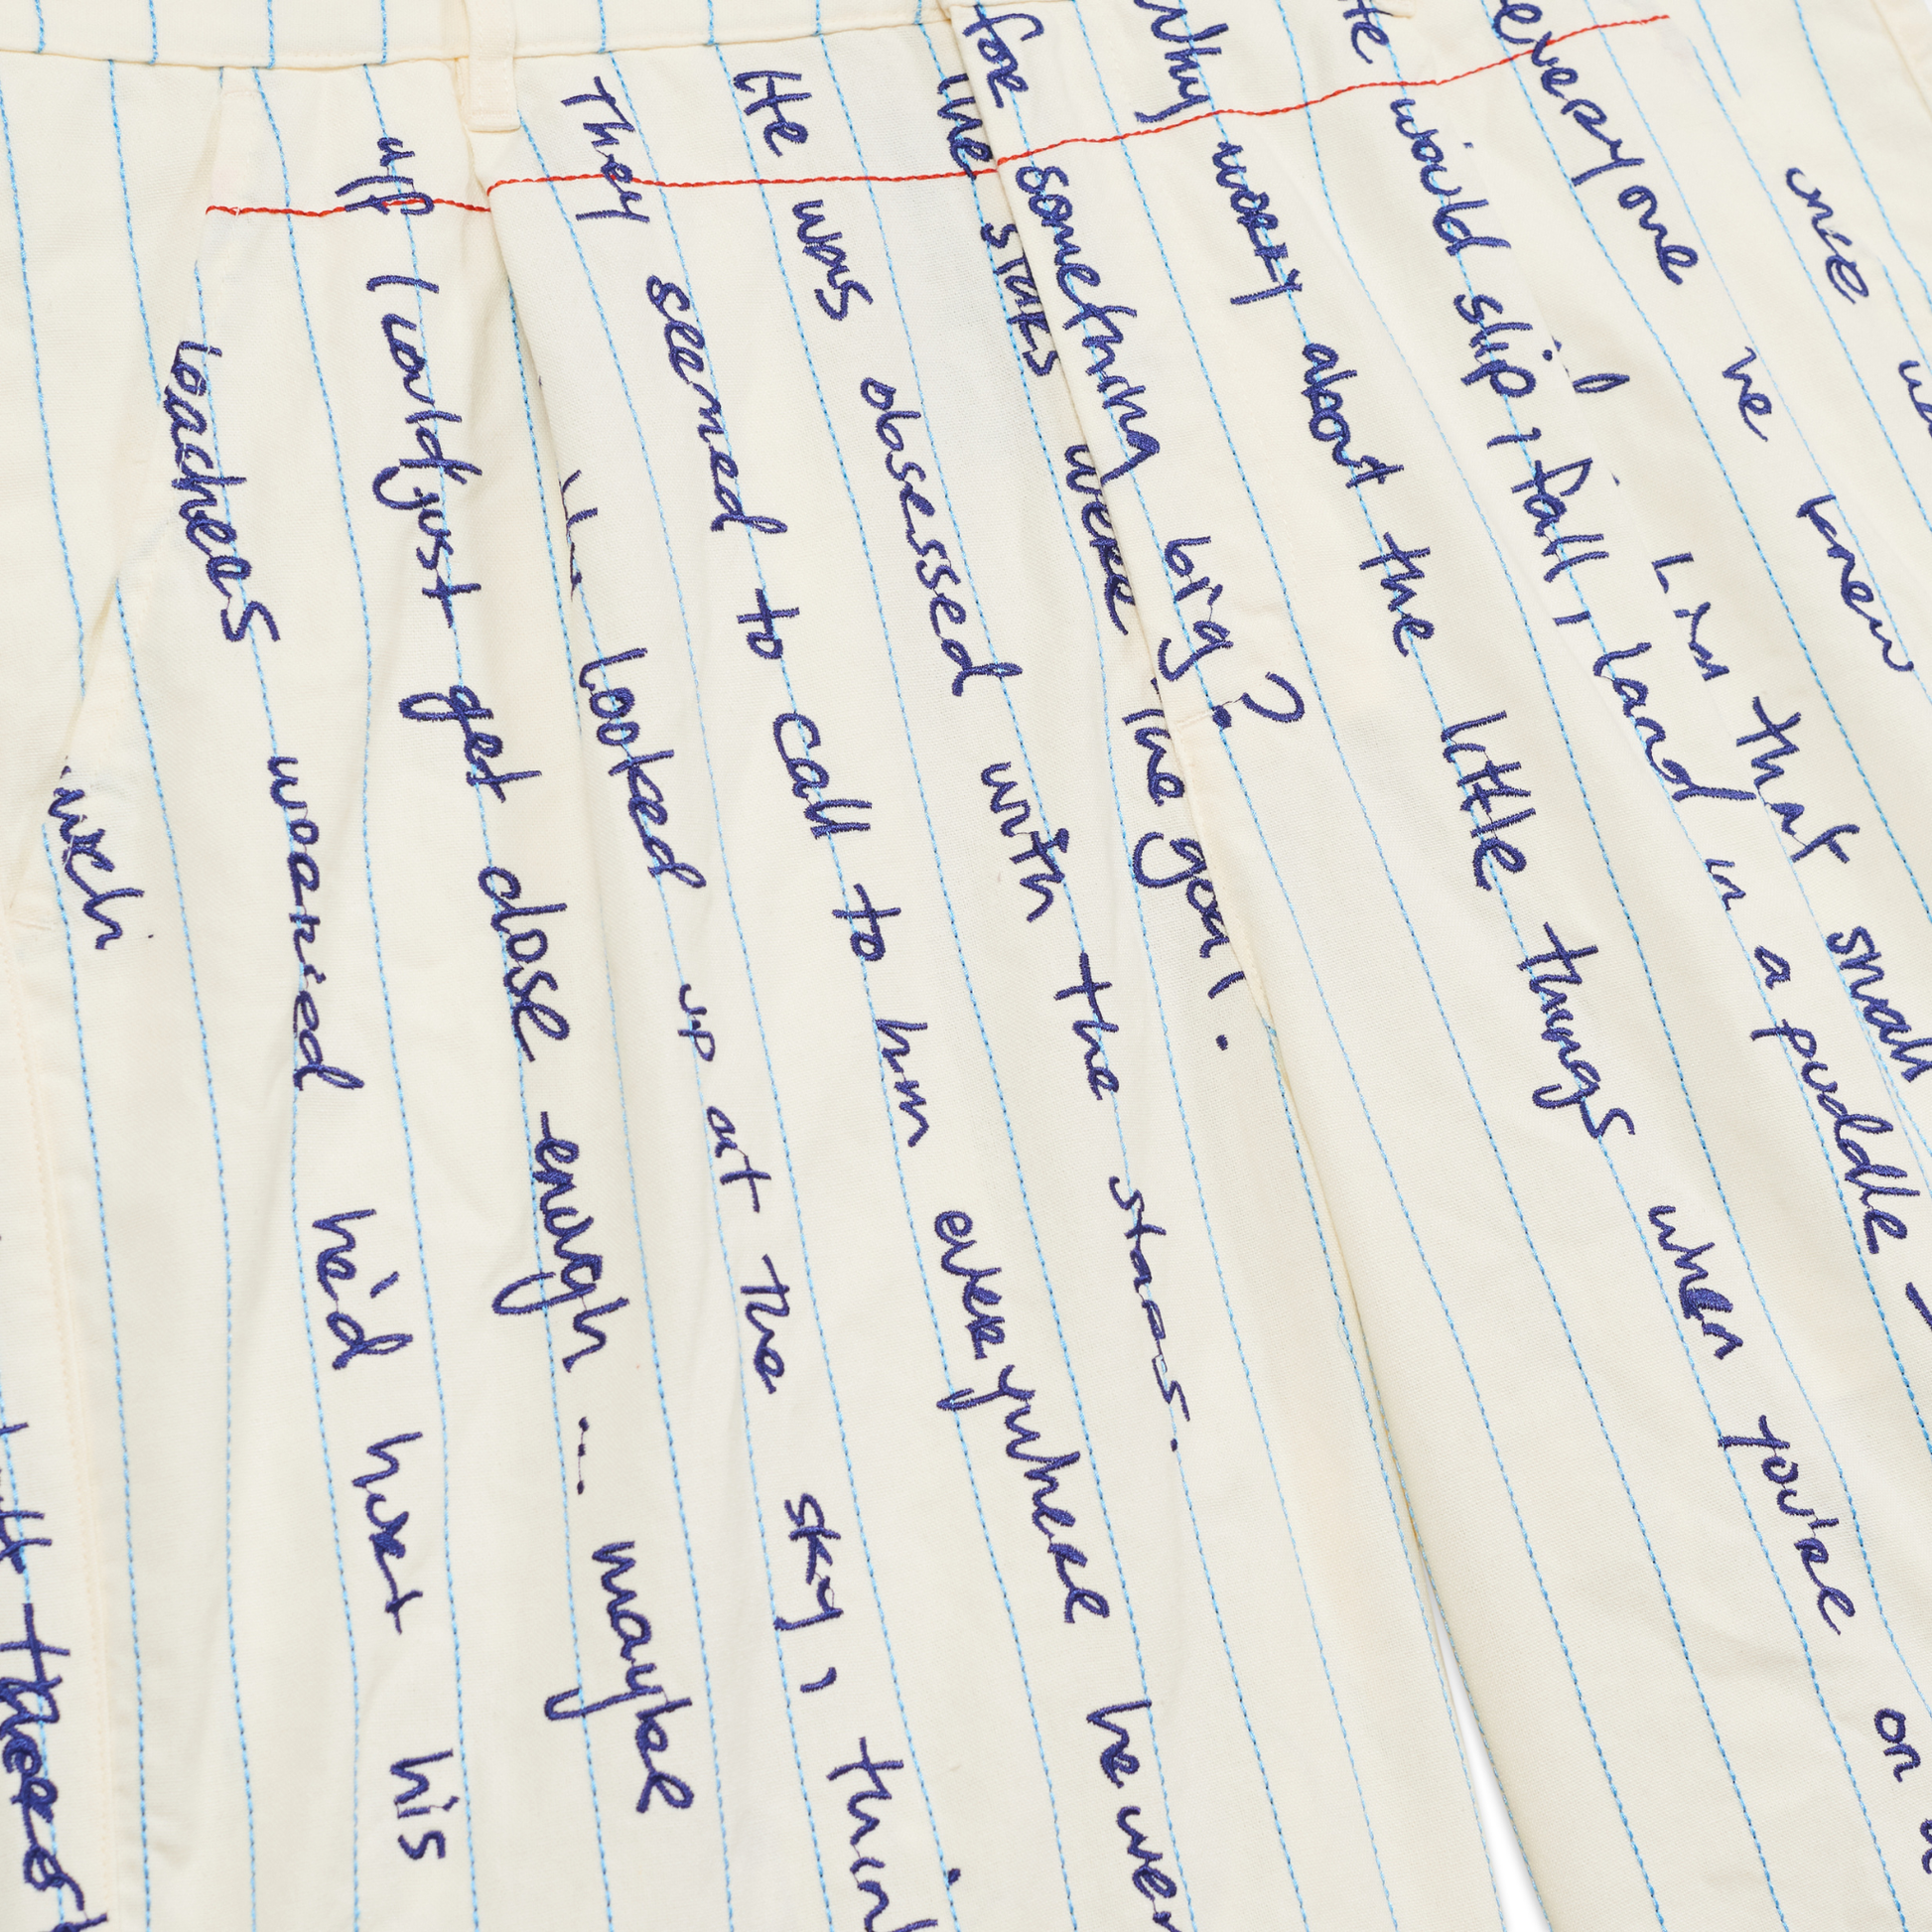 once
everyone he knew
him that small
He would slip, fall, land in a puddle
Why worry about the little things when you're on
for something big?
The stars were the goal.
He was obsessed with the stars.
They seemed to call to him everywhere he wen
looked up at the sky, thin
up I could just get close enough ... maybe
teachers worried he'd hurt his